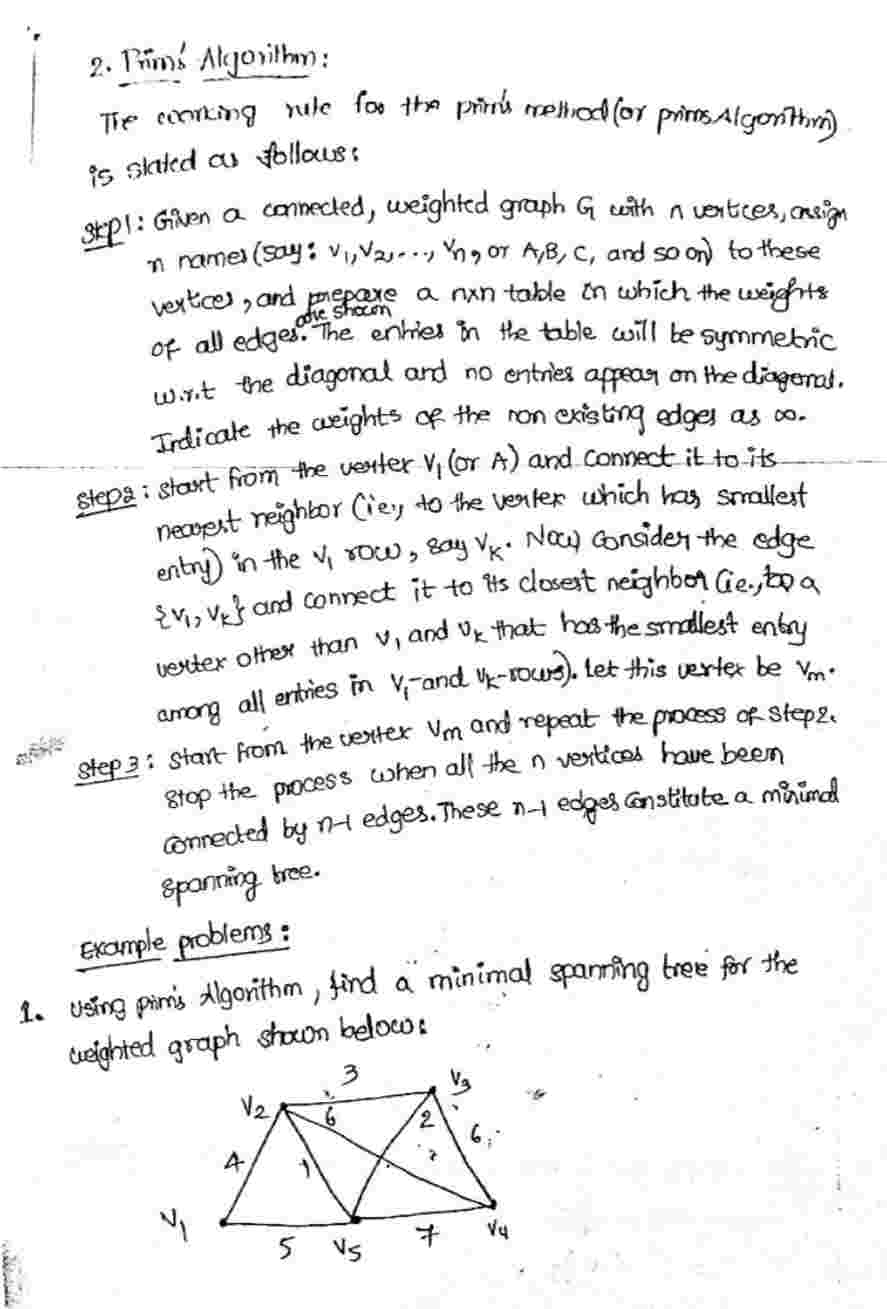 2. Prim's Algorithm:
The working rule for the prim's method (or prims Algorithm)
is stated as follows:
Step1: Given a connected, weighted graph G with n vertices, assign
n names (say: v1, v2, ..., vn, or A, B, C, and so on) to these
vertices, and prepare a nxn table in which the weights
of all edges are shown. The entries in the table will be symmetric
w.r.t the diagonal and no entries appear on the diagonal.
Indicate the weights of the non existing edges as ∞.
Step2: start from the vertex V1 (or A) and connect it to its
nearest neighbor (ie., to the vertex which has smallest
entry) in the V1 row, say Vk. Now consider the edge
{V1, Vk} and connect it to its closest neighbor (ie., to a
vertex other than V1 and Vk that has the smallest entry
among all entries in V1-and Vk-rows). Let this vertex be Vm.
Step 3: Start from the vertex Vm and repeat the process of Step2.
Stop the process when all the n vertices have been
connected by n-1 edges. These n-1 edges constitute a minimal
spanning tree.
Example problems:
1. Using prim's Algorithm, find a minimal spanning tree for the
weighted graph shown below:
3
V2
V3
6
2
6
4
1
V1
5
V5
7
V4